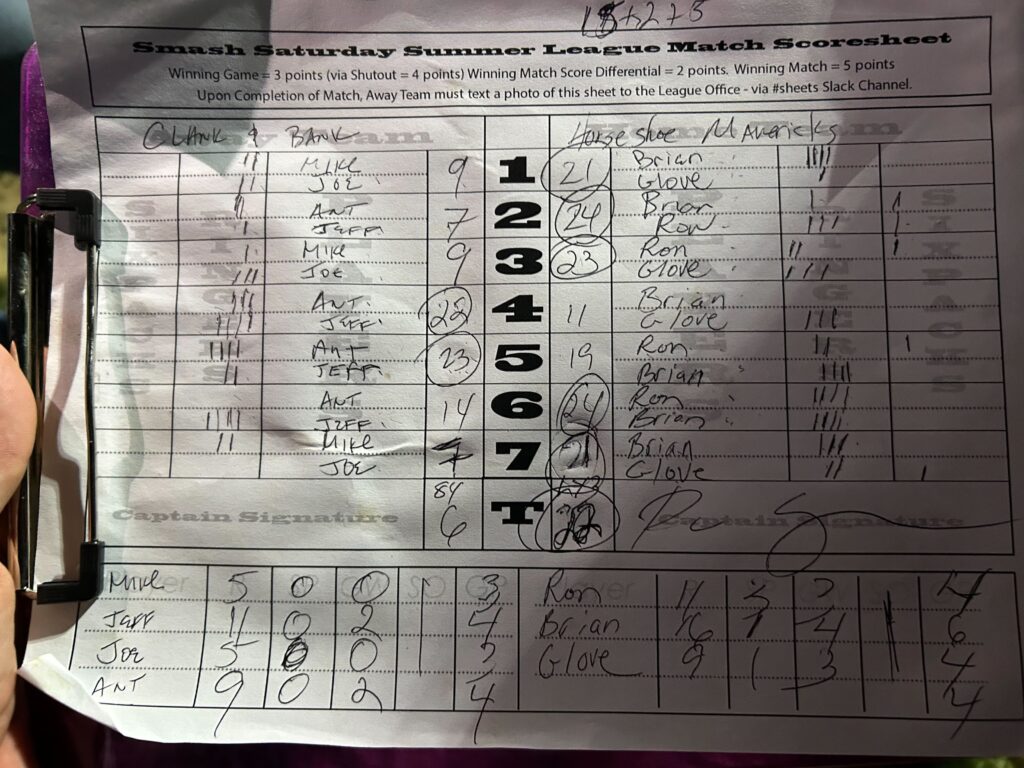 Smash Saturday Summer League Match Scoresheet
Winning Game = 3 points (via Shutout = 4 points) Winning Match Score Differential = 2 points. Winning Match = 5 points
Upon Completion of Match, Away Team must text a photo of this sheet to the League Office - via #sheets Slack Channel.
CLANK & BANK Horseshoe Mavericks
MIKE 9 1 21 Brian
JOE Glove
ANT 7 2 24 Brian
JEFF Ron
Mike 9 3 23 Ron
JOE Glove
ANT 22 4 11 Brian
JEFF Glove
Ant 23 5 19 Ron
JEFF Brian
ANT 14 6 24 Ron
JEFF Brian
Mike 7 7 21 Brian
JOE Glove
84
Captain Signature 6 T 22 Captain Signature
Mike 5 0 0 3 Ron 11 4
Jeff 11 0 2 4 Brian 16 4 6
Joe 5 0 0 3 Glove 9 1 3 4
ANT 9 0 2 4 4